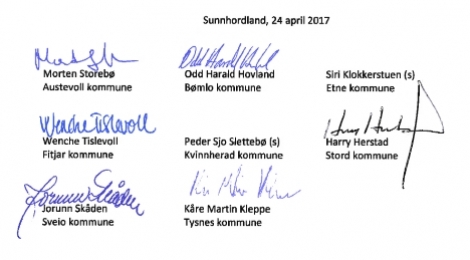 Sunnhordland, 24 april 2017
Morten Storebø
Austevoll kommune
Odd Harald Hovland
Bømlo kommune
Siri Klokkerstuen (s)
Etne kommune
Wenche Tislevoll
Wenche Tislevoll
Fitjar kommune
Peder Sjo Slettebø (s)
Kvinnherad kommune
Harry Herstad
Stord kommune
Jorunn Skåden
Jorunn Skåden
Sveio kommune
Kåre Martin Kleppe
Tysnes kommune